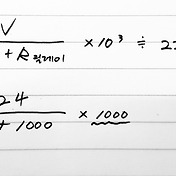 V
+ R릴레이 × 10³ ≒ 22
24
+ 1000 × 1000